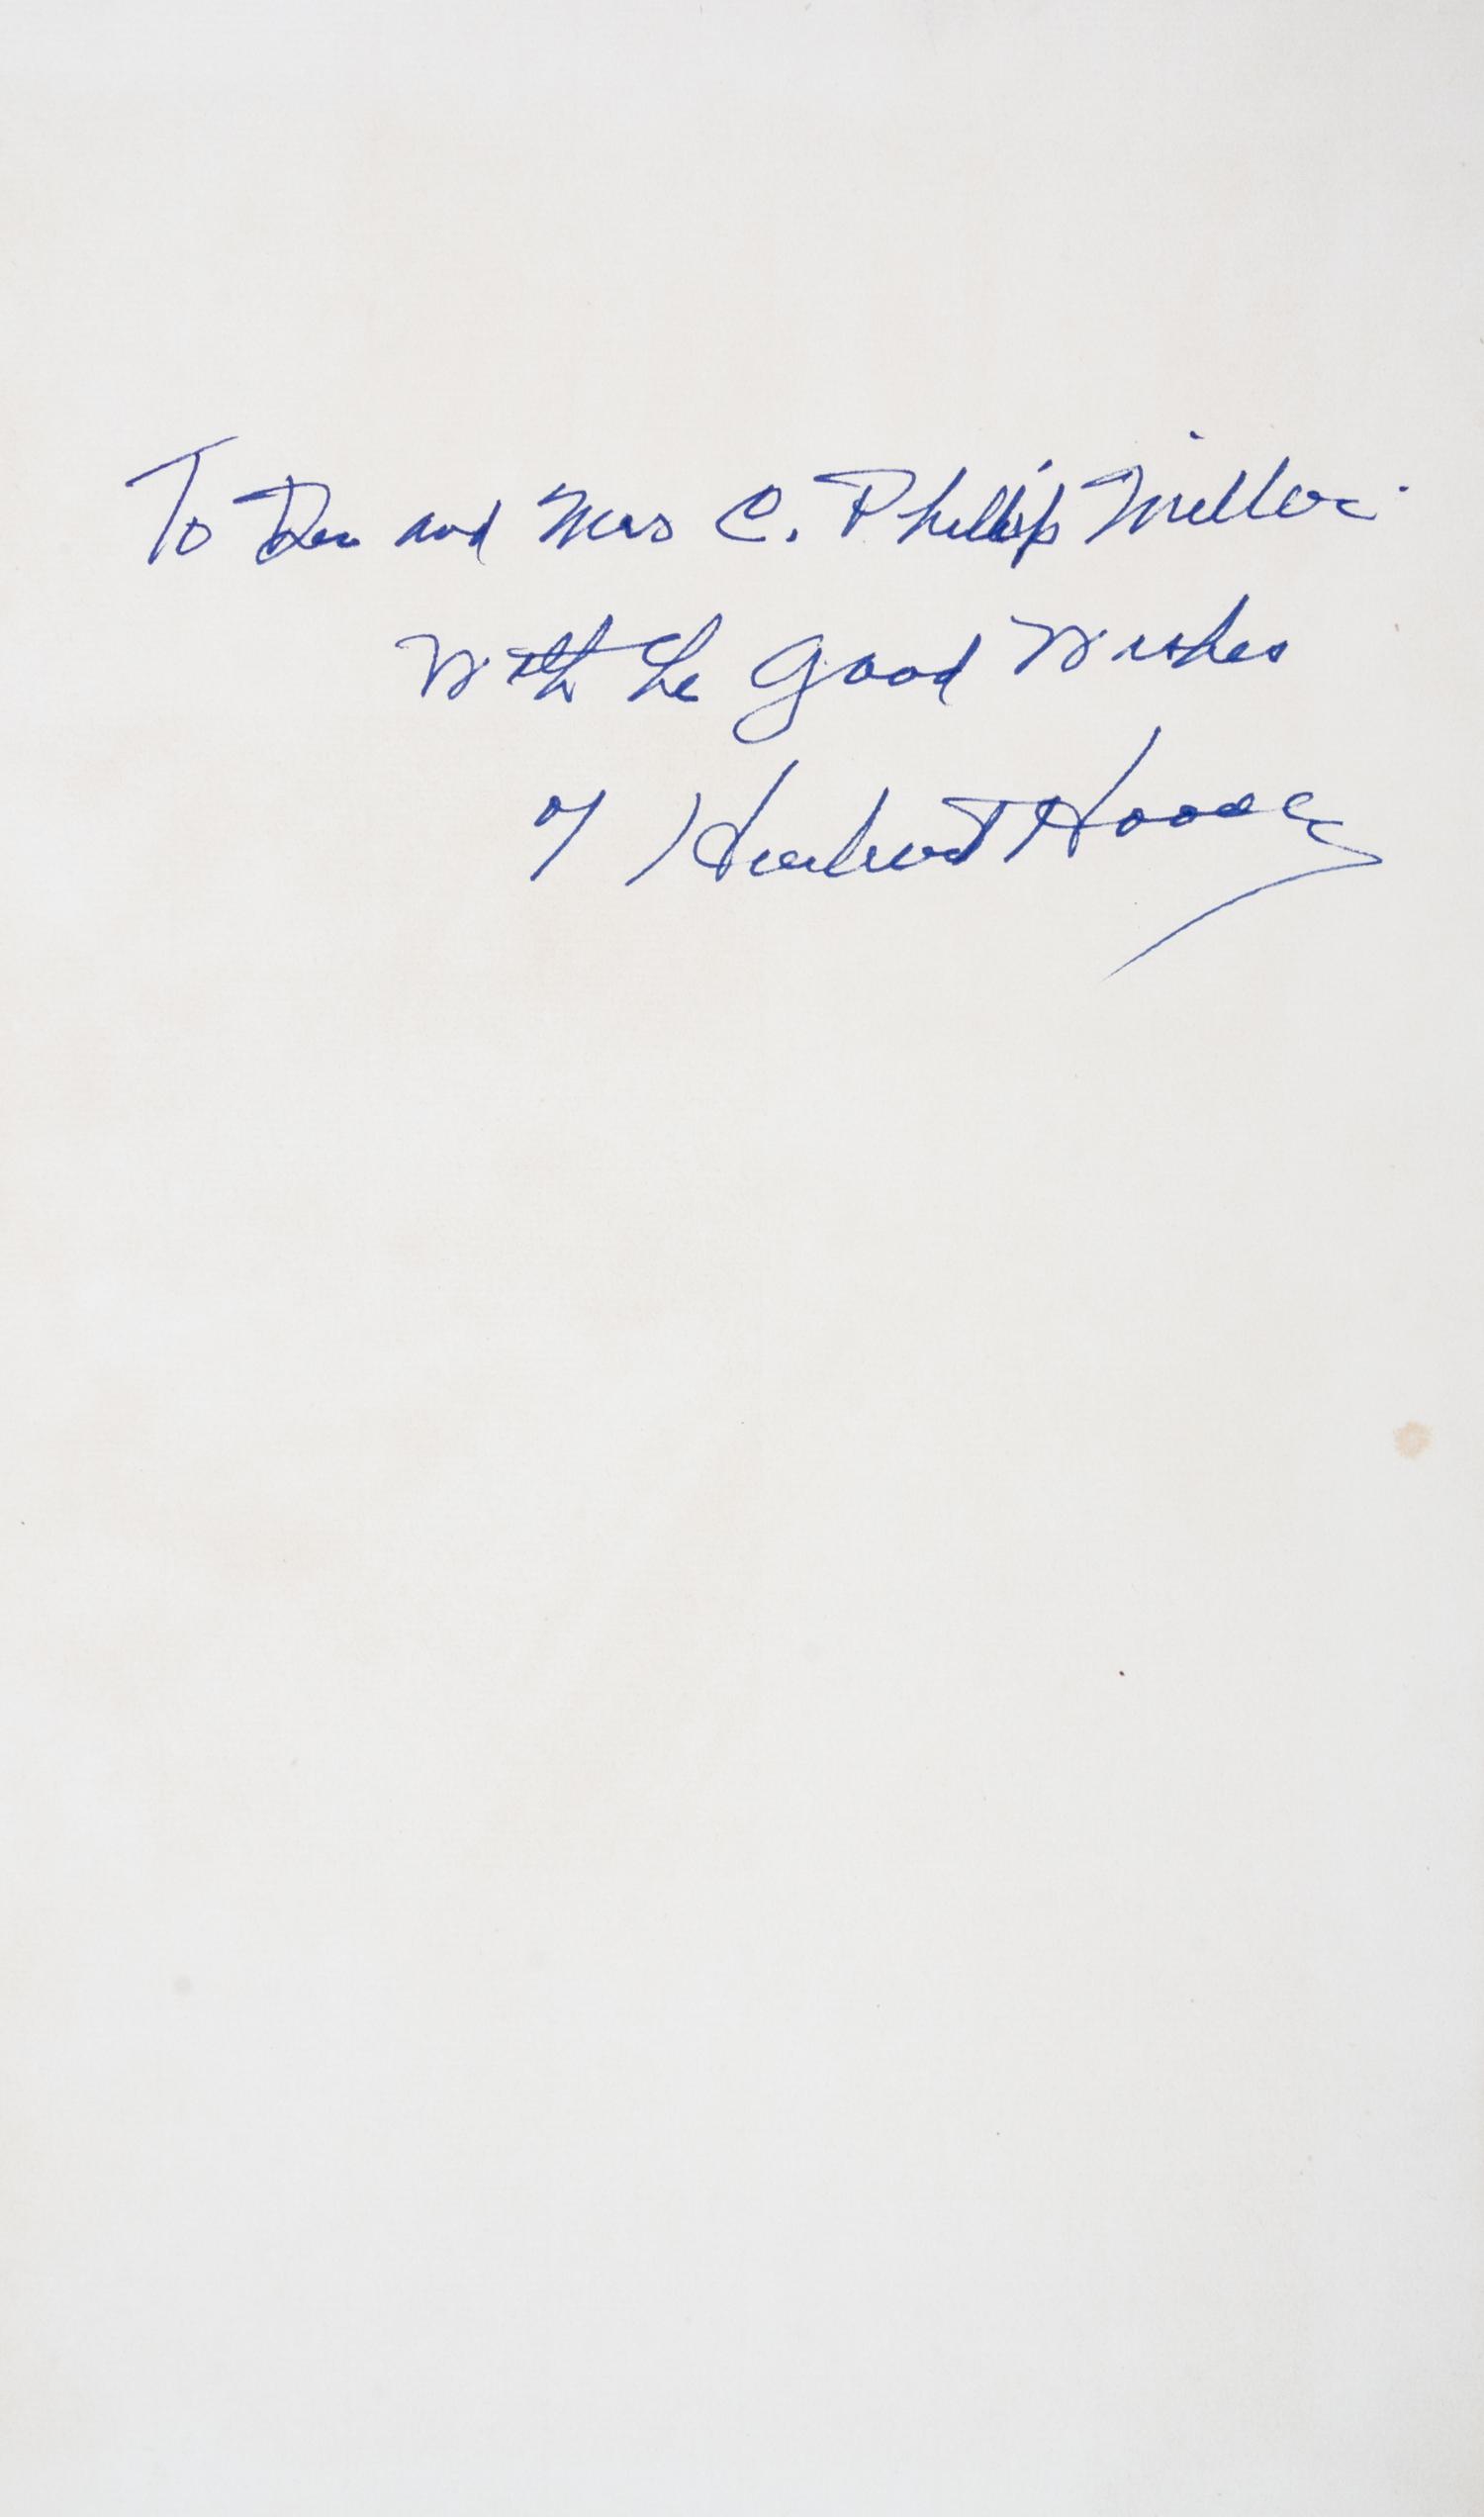 To Dr. and Mrs C. Phillip Miller
With the Good Wishes
of Herbert Hoover